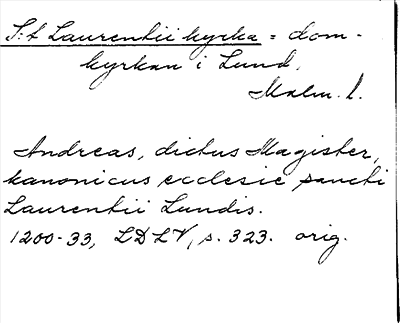 S:t Laurentii kyrka = dom-
kyrkan i Lund,
Malm. l.
Andreas, dictus Magister,
kanonicus ecclesie sancti
Laurentii Lundis.
1200-33, LDLV, s. 323. orig.